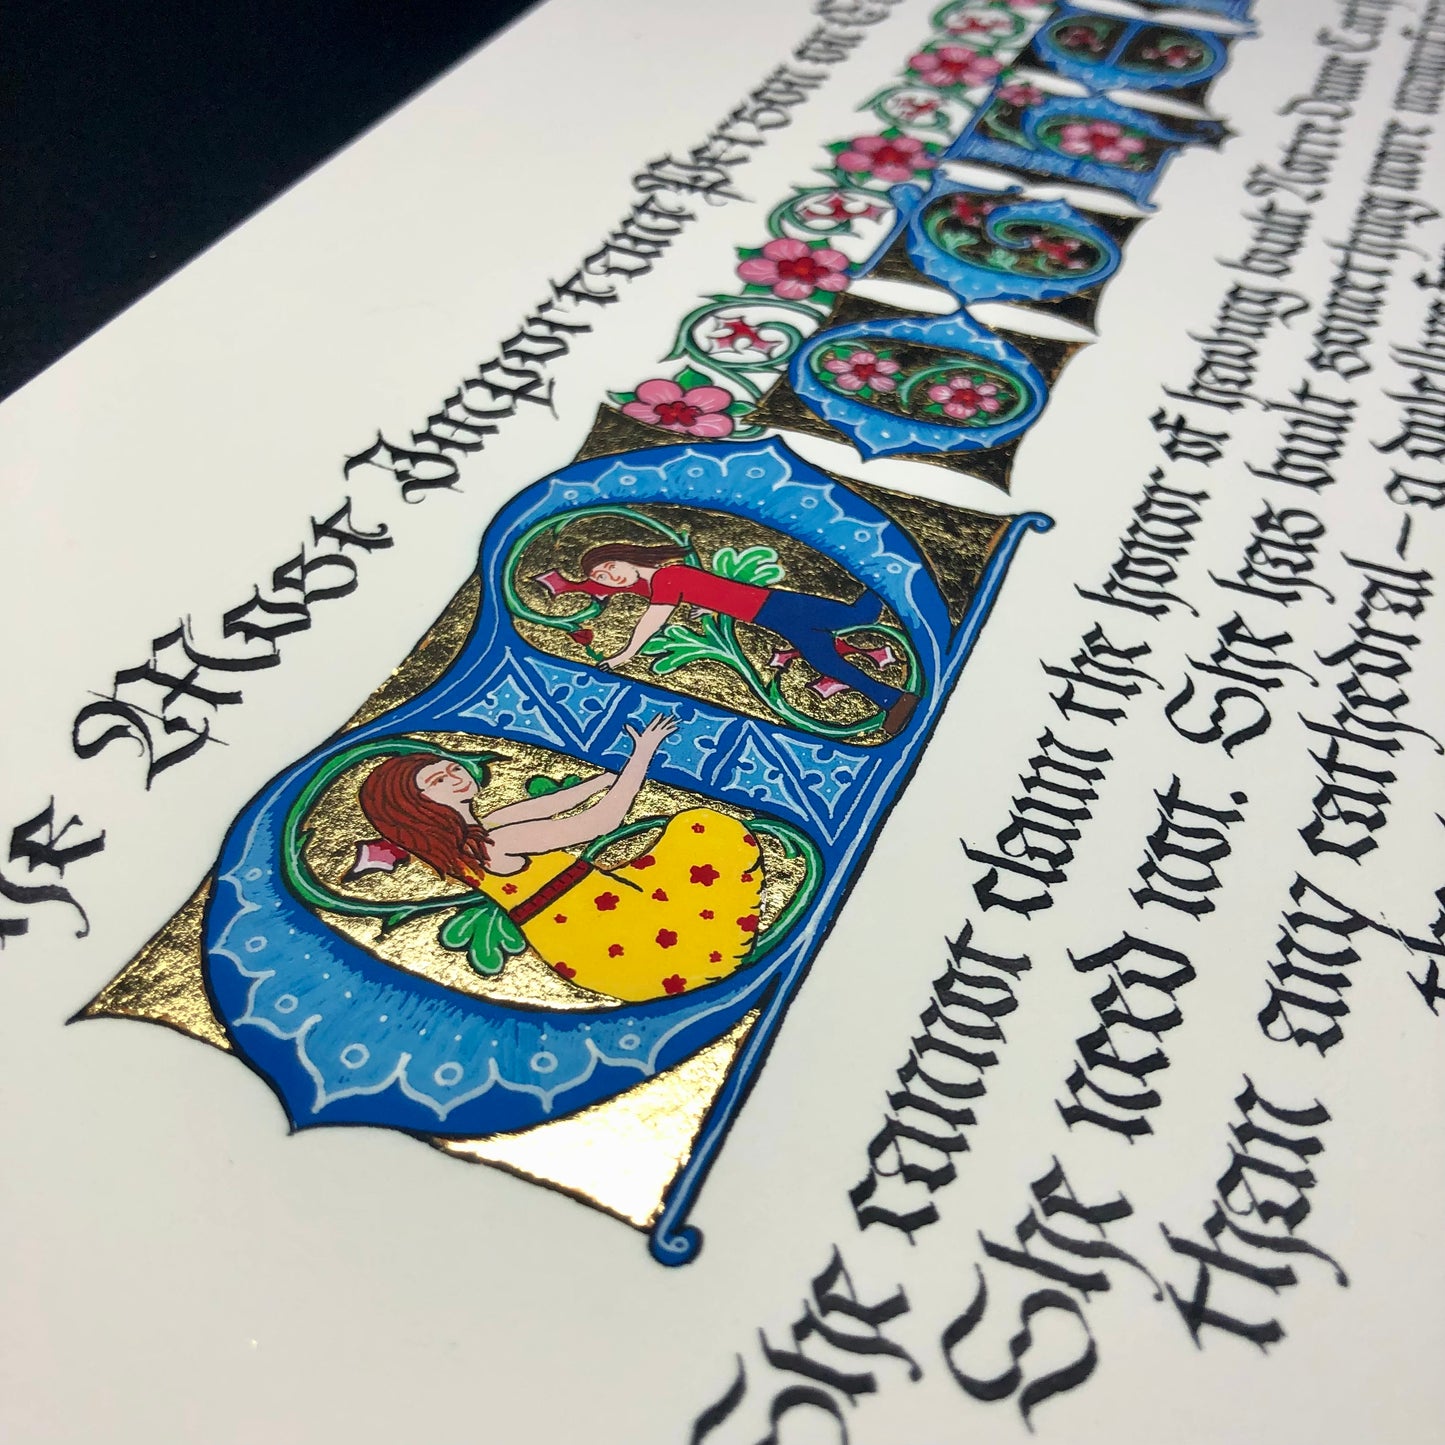 Most Important Person on
MOTHE
She cannot claim the honor of having built Notre Dame
She need not. She has built something more
than any cathedral—a dwelling